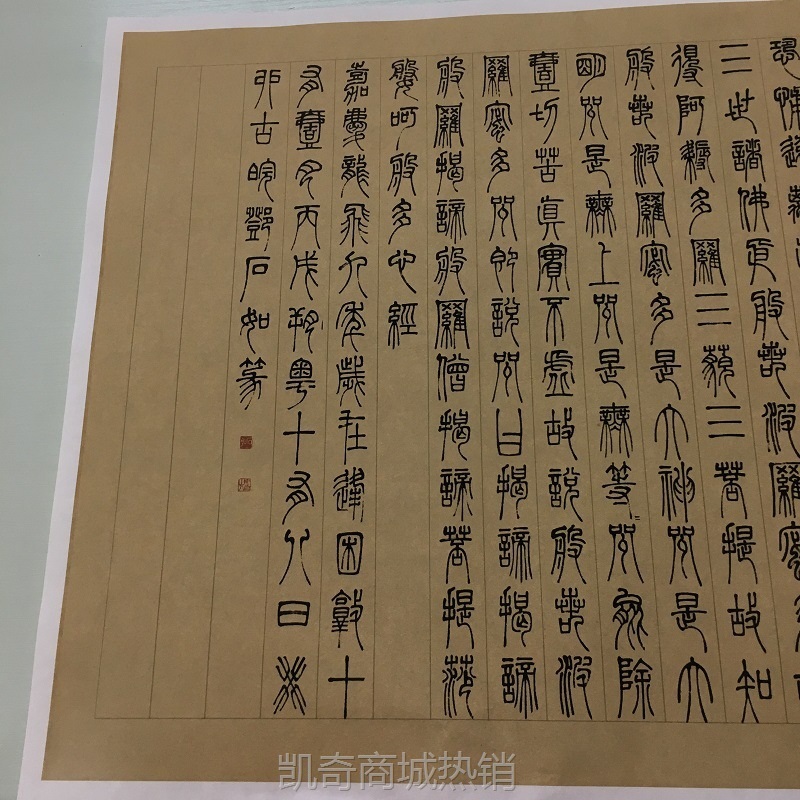 恐怖遠
三世諸佛依般若波羅蜜
得阿耨多羅三藐三菩提故知
般若波羅蜜多是大神咒是大
明咒是無上咒是無等咒能除
壹切苦真實不虛故說般若波
羅蜜多咒即說咒曰揭諦揭諦
般羅揭諦般羅僧揭諦菩提莎
婆呵般多心經
嘉慶龍飛九年歲在逢困敦十
有壹月丙戌朔粵十有八日癸
卯古皖鄧石如篆
凯奇商城热销